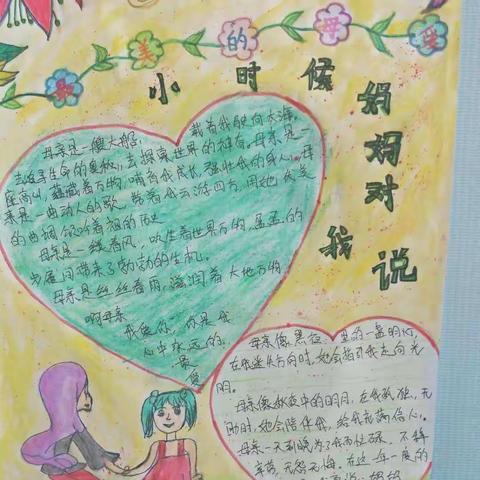 美的母爱
小时候
妈妈对我说
母亲是一艘大船, 载着我驶向大海,
去探寻生命的奥秘, 去探索世界的神奇。母亲是一
座高山, 蕴藏着万物, 哺育我成长, 强壮我的身心。母
亲是一曲动人的歌, 带着我云游四方, 用她优美
的曲调
母亲是一缕春风, 吹生着世界万物, 孟孟的
步履间带来了勃勃的生机。
母亲是丝丝春雨, 滋润着大地万物
啊母亲
我
你是我
心中永远的
最爱
母亲像黑夜里的一盏明灯,
在我迷失方向时, 她会指引我走向光
明。
母亲像夜中的明月, 在我孤独、无
助时, 她会陪伴我, 给我充满信心。
母亲一天到晚为了我而忙碌, 不辞
辛劳, 无怨无悔。在这年一度的